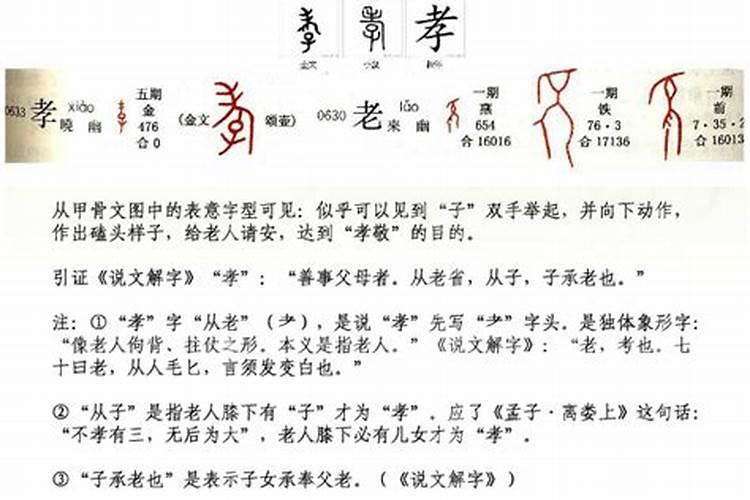 孝
金文 小篆 楷体
0633 孝 xiào 曉幽 五期 金 476 合0 (金文 頌壷) 0630 老 lǎo 來幽 一期 燕 654 合16016 一期 铁 76·3 合17136 一期 前 7·35·2 合16013
从甲骨文图中的表意字型可见：似乎可以见到“子”双手举起，并向下动作，
作出磕头样子，给老人请安，达到“孝敬”的目的。
引证《说文解字》“孝”：“善事父母者。从老省，从子，子承老也。”
注：①“孝”字“从老”（耂），是说“孝”先写“耂”字头。是独体象形字：
“像老人佝背、拄仗之形。本义是指老人。”《说文解字》：“老，考也。七
十曰老，从人毛匕，言须发变白也。”
②“从子”是指老人膝下有“子”才为“孝”。应了《孟子·离娄上》这句话：
“不孝有三，无后为大”，老人膝下必有儿女才为“孝”。
③“子承老也”是表示子女承奉父老。（《说文解字》）